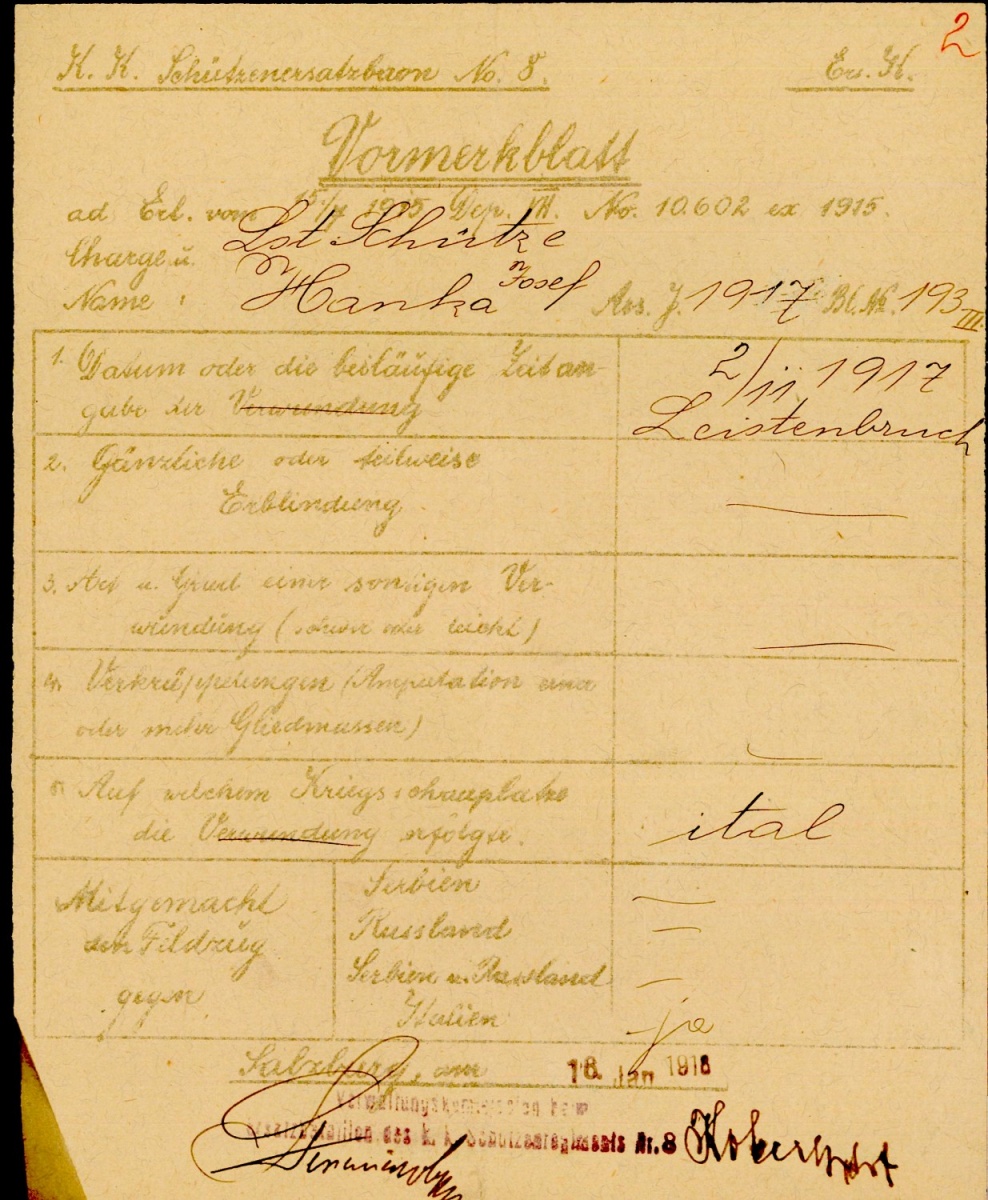 2
K. K. Schützenersatzbaon No. 8. Ers. K.
Vormerkblatt
ad Erl. vom 15/7 1915 Dep. VII. No. 10.602 ex 1915.
Charge u. Lst Schütze
Name: Hanka Josef Ass. J. 1917 Bl. № 193 III.
1. Datum oder die beiläufige Zeitan-
gabe der Verwundung
2/11 1917
Leistenbruch
2. Gänzliche oder teilweise
Erblindung.
3. Art u. Grad einer sonstigen Ver-
wundung (schwer oder leicht)
4. Verkrüppelungen (Amputation einer
oder mehr Gliedmassen)
5. Auf welchem Kriegsschauplatze
die Verwundung erfolgte. ital
Mitgemacht
den Feldzug
gegen
Serbien —
Russland —
Serbien u. Russland —
Italien ja
Salzburg, am 18. Jan 1918
Verwaltungskommission beim
Ersatzbataillon des k. k. Schützenregiments Nr. 8